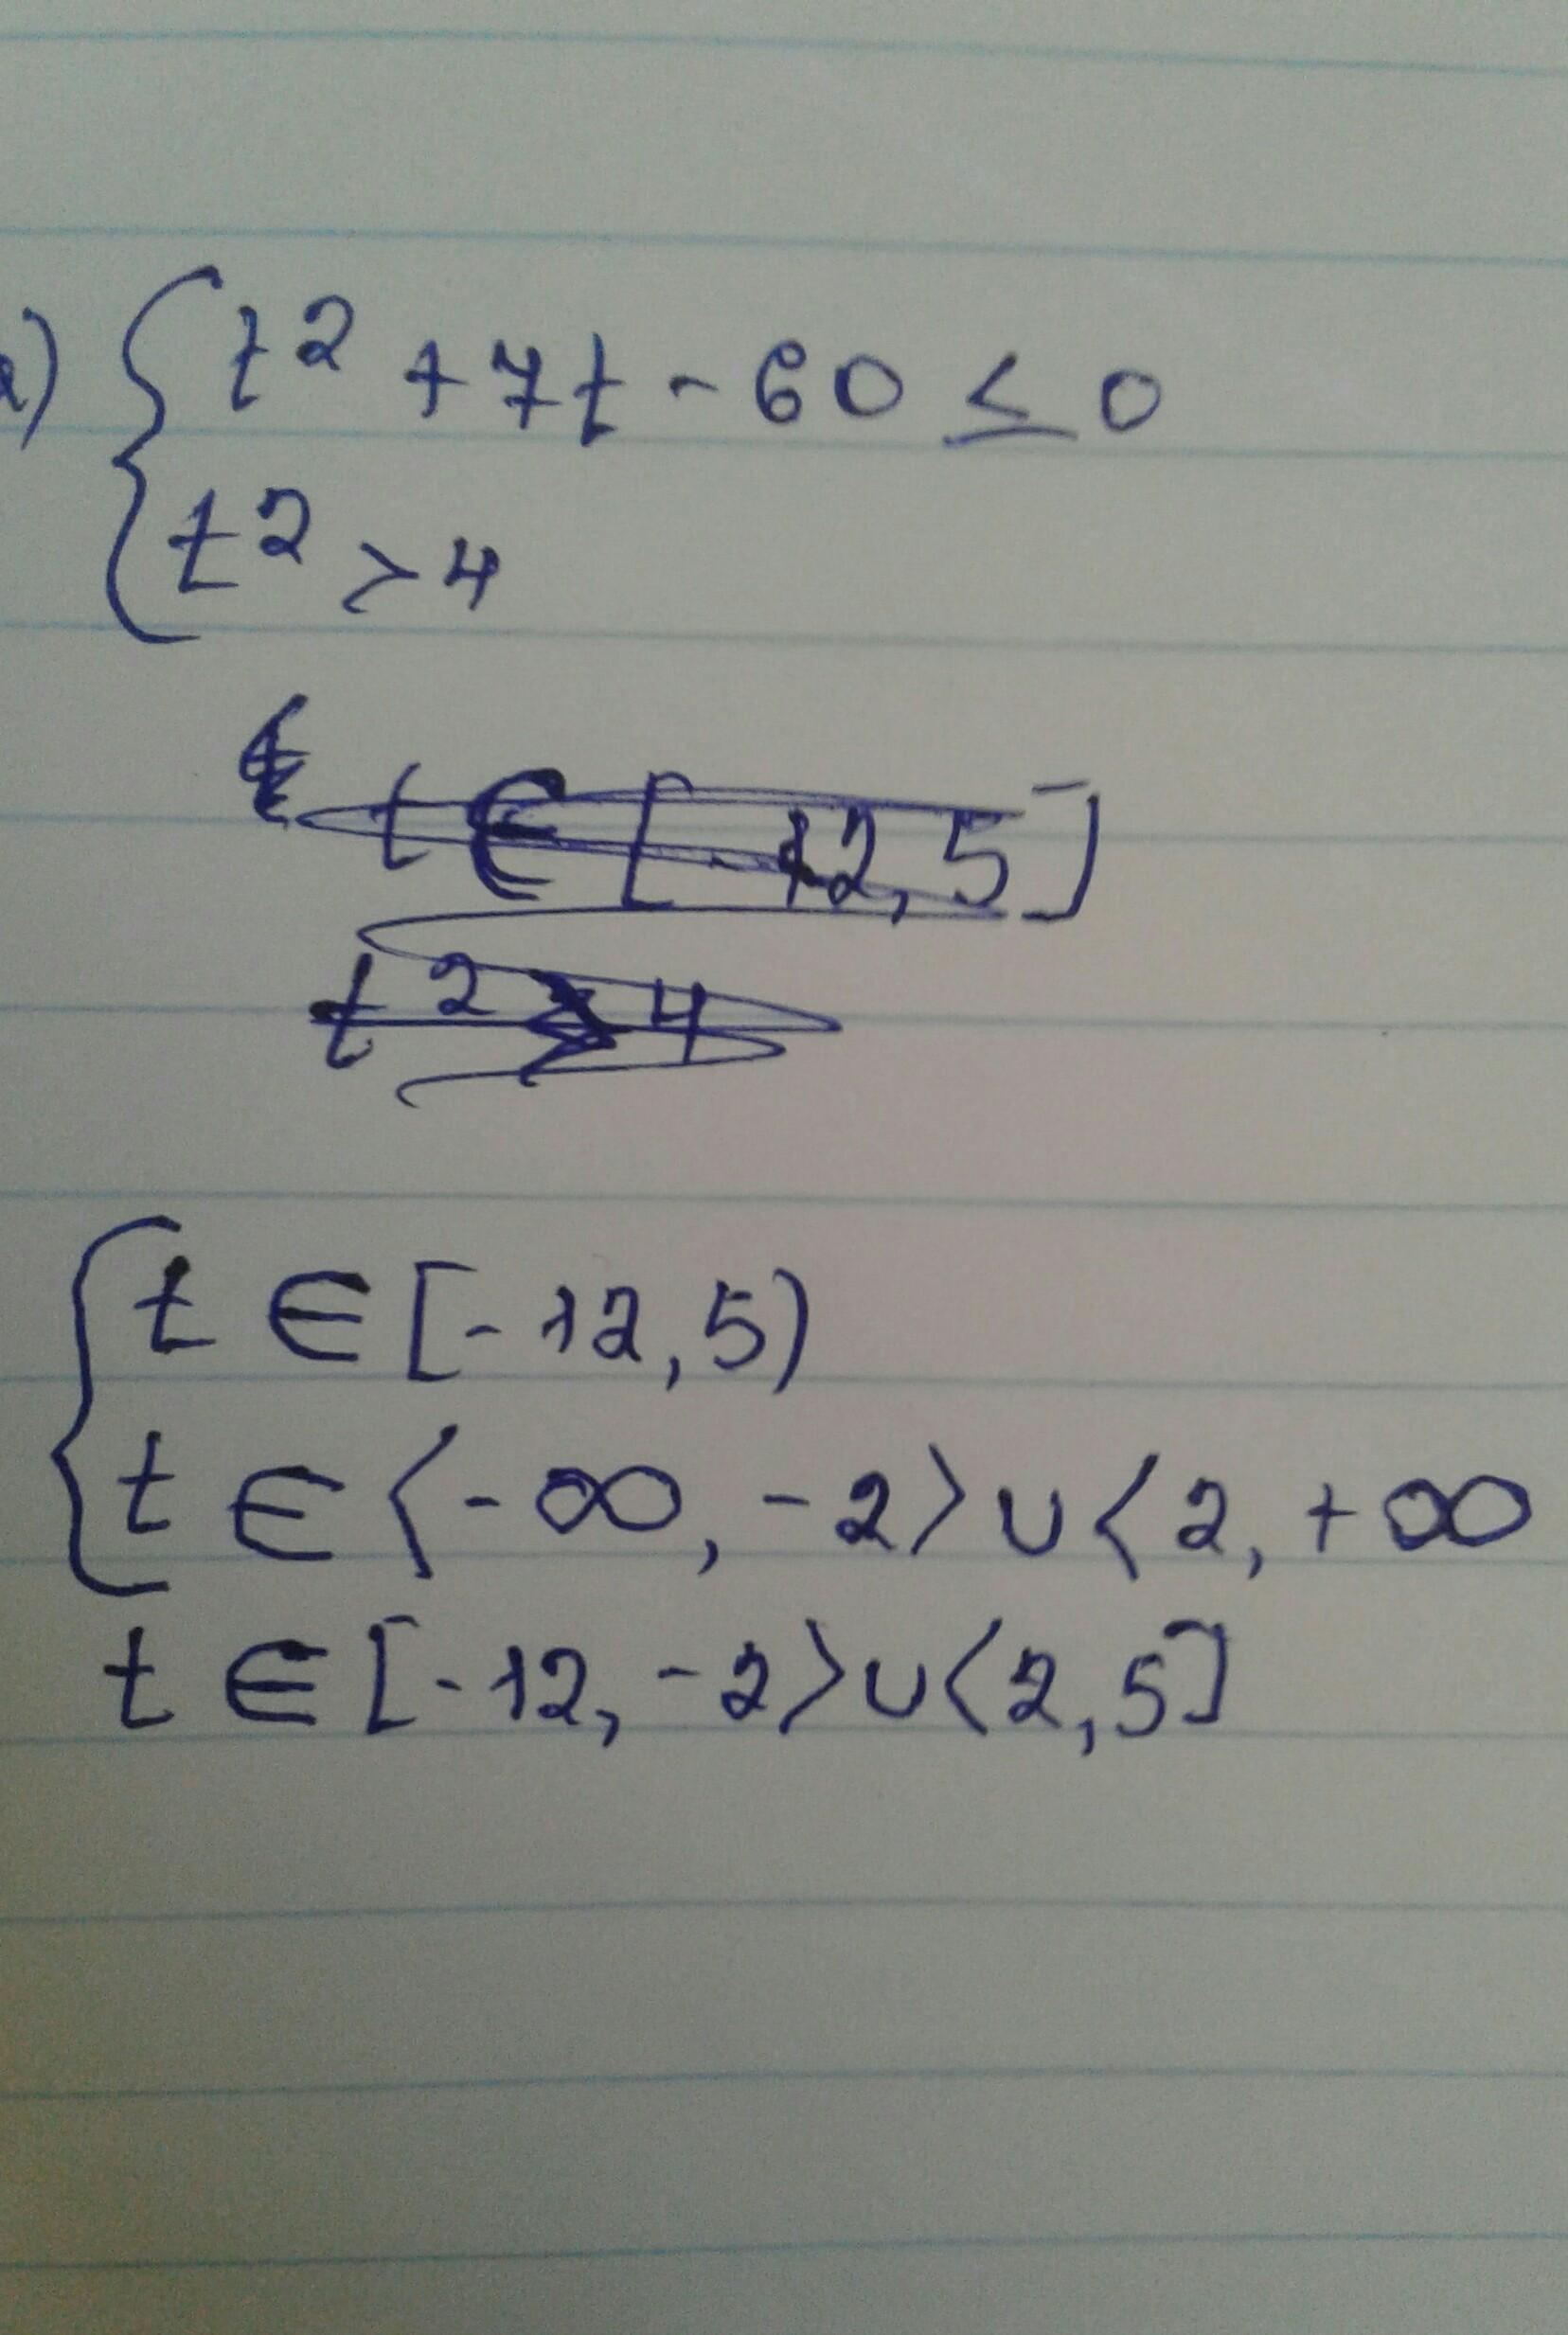 ) { t² + 7t - 60 ≤ 0
t² > 4
t ∈ [-12, 5]
t² > 4
{ t ∈ [-12, 5)
t ∈ ⟨-∞, -2⟩ ∪ ⟨2, +∞
t ∈ [-12, -2⟩ ∪ ⟨2, 5]